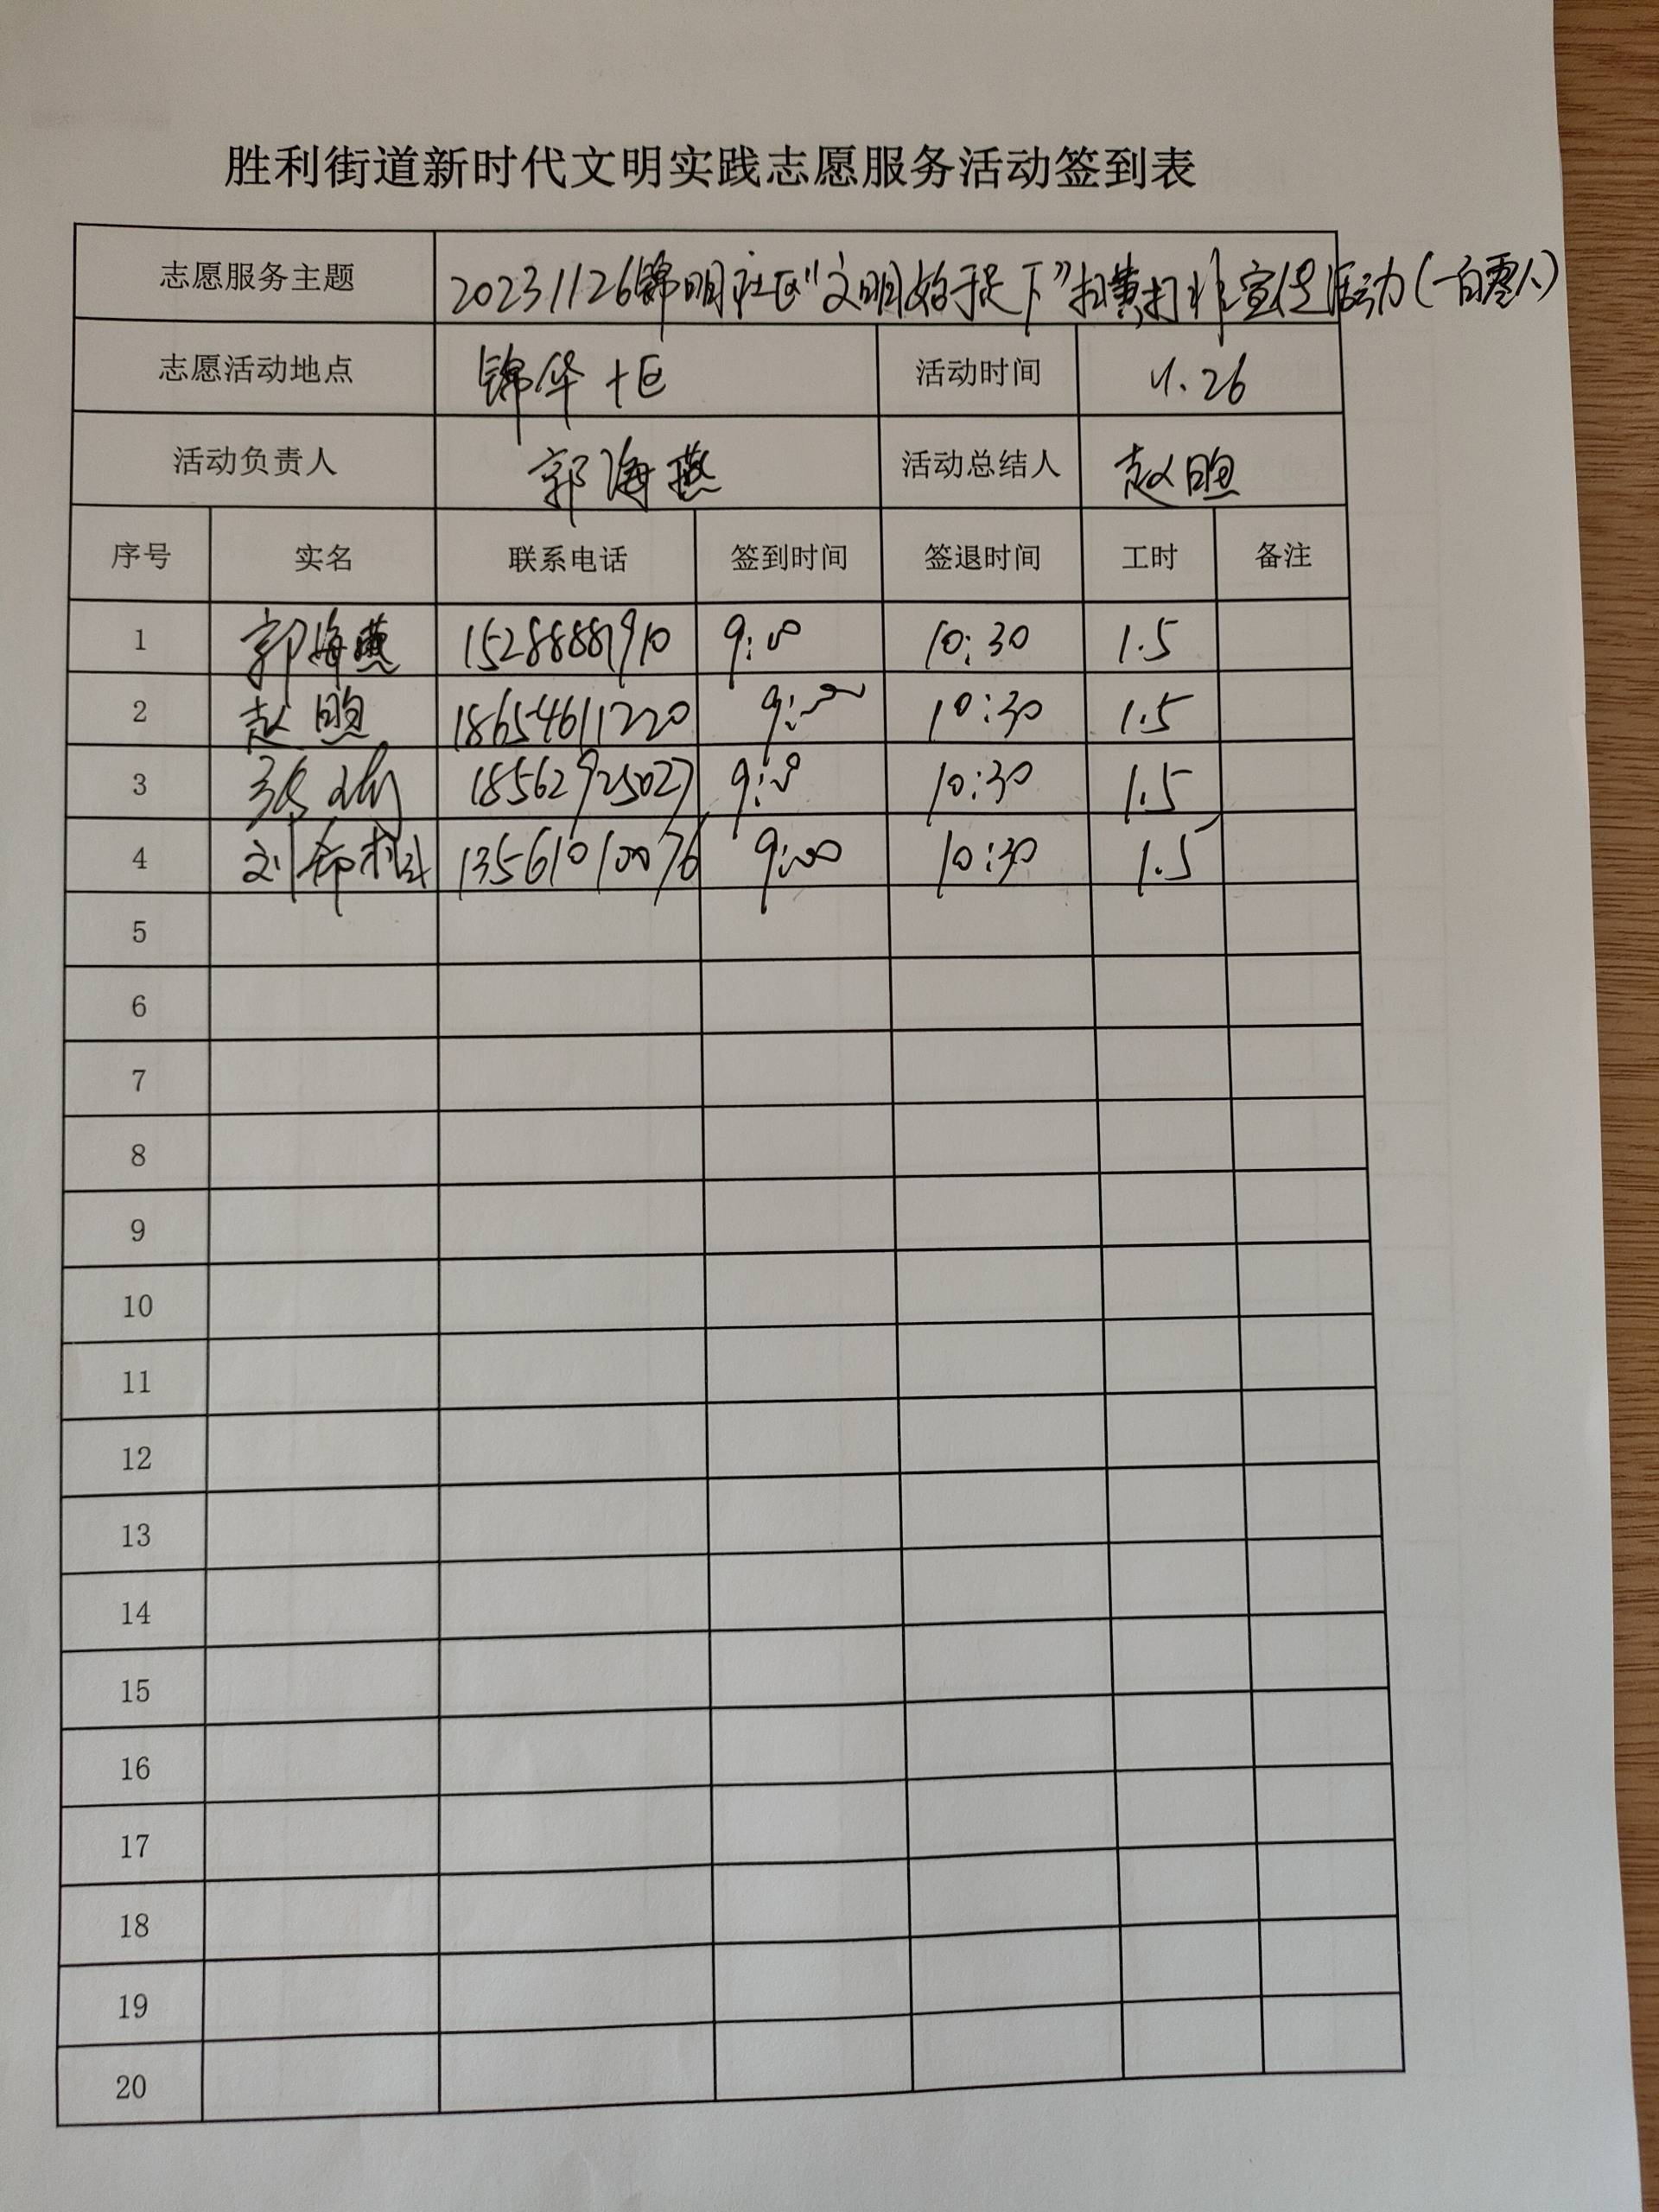 胜利街道新时代文明实践志愿服务活动签到表
志愿服务主题 20231126锦明社区“文明始于足下”扫黄打非宣传活动(一百零八)
志愿活动地点 锦华十区 活动时间 11.26
活动负责人 郭海燕 活动总结人 赵煦
序号 实名 联系电话 签到时间 签退时间 工时 备注
1 郭海燕 15288881910 9:00 10:30 1.5
2 赵煦 18654611220 9:00 10:30 1.5
3 18562925027 9:00 10:30 1.5
4 刘 13561010076 9:00 10:30 1.5
5
6
7
8
9
10
11
12
13
14
15
16
17
18
19
20